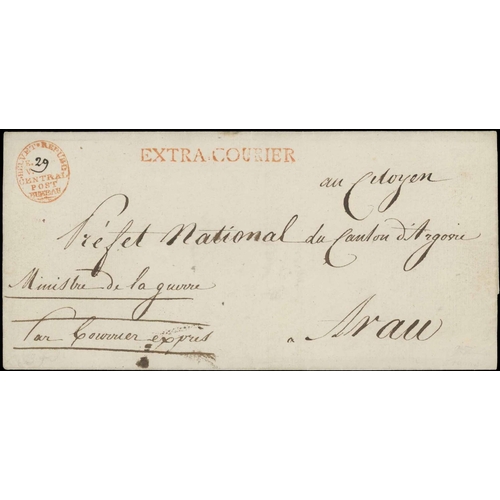 HELVET. REPUBL.
29
CENTRAL
POST
BUREAU
EXTRA.COURIER
au Citoyen
Préfet National du Canton d'Argovie
Ministre de la guerre
Par Courrier exprès
a Arau